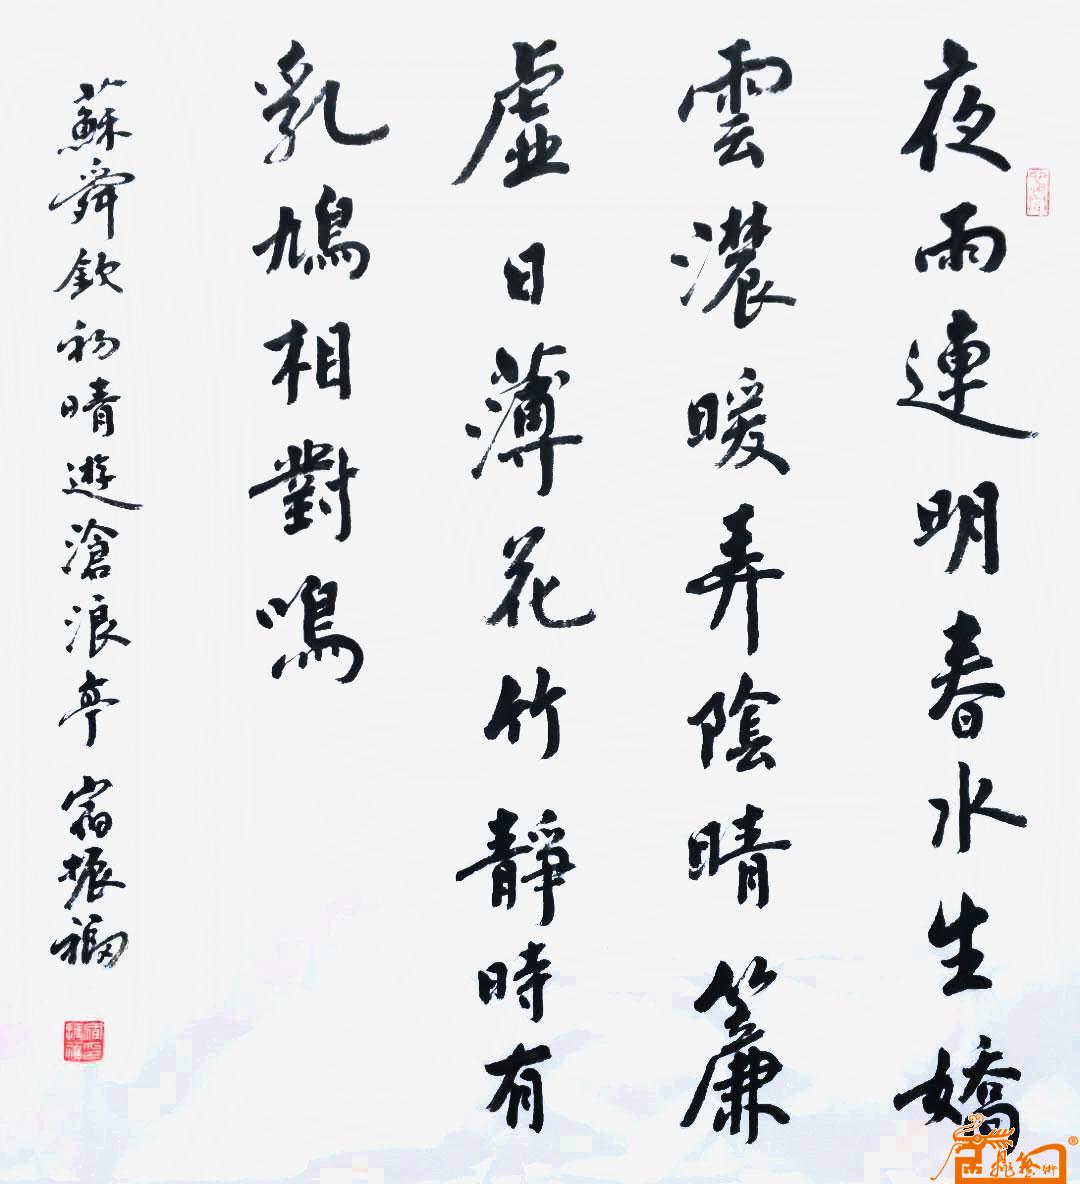 夜雨連明春水生嬌
雲濃暖弄陰晴簾
虛日薄花竹靜時有
乳鳩相對鳴
蘇舜欽初晴遊滄浪亭 宿振福